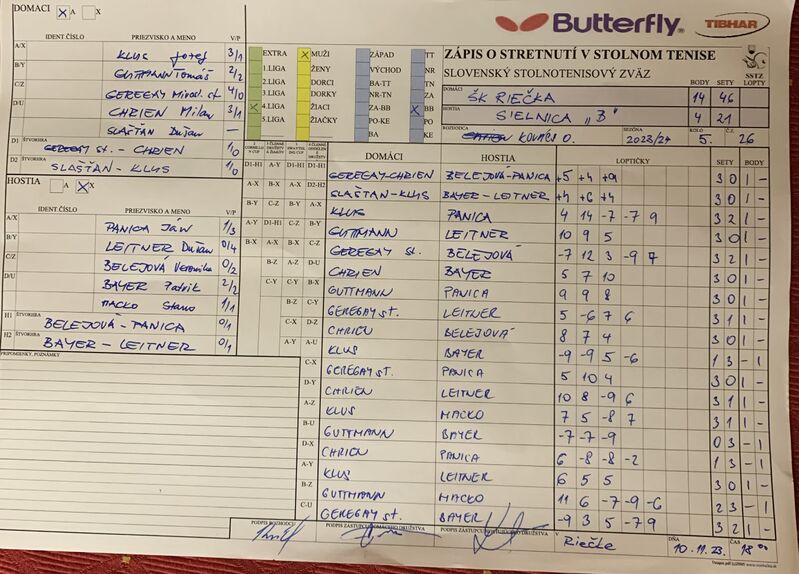 DOMÁCI A X
IDENT. ČÍSLO PRIEZVISKO A MENO V/P
A/X KLUS Jozef 3/1
B/Y GUTTMANN Tomáš 2/2
C/Z GEREGAY Mirosl. st. 4/0
D/U CHRIEN Milan 3/1
SLAŠŤAN Dušan —
D1 ŠTVORHRA GEREGAY ST. - CHRIEN 1/0
D2 ŠTVORHRA SLAŠŤAN - KLUS 1/0
HOSTIA A X
IDENT. ČÍSLO PRIEZVISKO A MENO V/P
A/X PANICA Ján 1/3
B/Y LEITNER Dušan 0/4
C/Z BELEJOVÁ Veronika 0/2
D/U BAYER Patrik 2/2
MACKO Stano 1/1
H1 ŠTVORHRA BELEJOVÁ - PANICA 0/1
H2 ŠTVORHRA BAYER - LEITNER 0/1
PRIPOMIENKY, POZNÁMKY
Butterfly TIBHAR
EXTRA MUŽI ZÁPAD TT
1.LIGA ŽENY VÝCHOD NR
2.LIGA DORCI BA-TT TN
3.LIGA DORKY NR-TN ZA
4.LIGA ŽIACI ZA-BB BB
5.LIGA ŽIAČKY PO-KE PO
BA KE
ZÁPIS O STRETNUTÍ V STOLNOM TENISE
SLOVENSKÝ STOLNOTENISOVÝ ZVÄZ SSTZ
BODY SETY LOPTY
DOMÁCI ŠK RIEČKA 14 46
HOSTIA SIELNICA „B" 4 21
ROZHODCA KOVÁČ O. SEZÓNA 2023/24 KOLO 5. Č.Z. 26
DOMÁCI HOSTIA LOPTIČKY SETY BODY
GEREGAY-CHRIEN BELEJOVÁ-PANICA +5 +4 +9 3 0 1 -
SLAŠŤAN-KLUS BAYER-LEITNER +4 +6 +4 3 0 1 -
KLUS PANICA 4 14 -7 -7 9 3 2 1 -
GUTTMANN LEITNER 10 9 5 3 0 1 -
GEREGAY st. BELEJOVÁ -7 12 3 -9 7 3 2 1 -
CHRIEN BAYER 5 7 10 3 0 1 -
GUTTMANN PANICA 9 9 8 3 0 1 -
GEREGAY st. LEITNER 5 -6 7 6 3 1 1 -
CHRIEN BELEJOVÁ 8 7 4 3 0 1 -
KLUS BAYER -9 -9 5 -6 1 3 - 1
C-X GEREGAY st. PANICA 5 10 4 3 0 1 -
D-Y CHRIEN LEITNER 10 8 -9 6 3 1 1 -
A-Z KLUS MACKO 7 5 -8 7 3 1 1 -
B-U GUTTMANN BAYER -7 -7 -9 0 3 - 1
D-X CHRIEN PANICA 6 -8 -8 -2 1 3 - 1
A-Y KLUS LEITNER 6 5 5 3 0 1 -
B-Z GUTTMANN MACKO 11 6 -7 -9 -6 2 3 - 1
C-U GEREGAY st. BAYER -9 3 5 -7 9 3 2 1 -
PODPIS ROZHODCU PODPIS ZÁSTUPCU DOMÁCEHO DRUŽSTVA PODPIS ZÁSTUPCU HOSŤUJÚCEHO DRUŽSTVA
V Riečke DŇA 10.11.23. ČAS 18 00